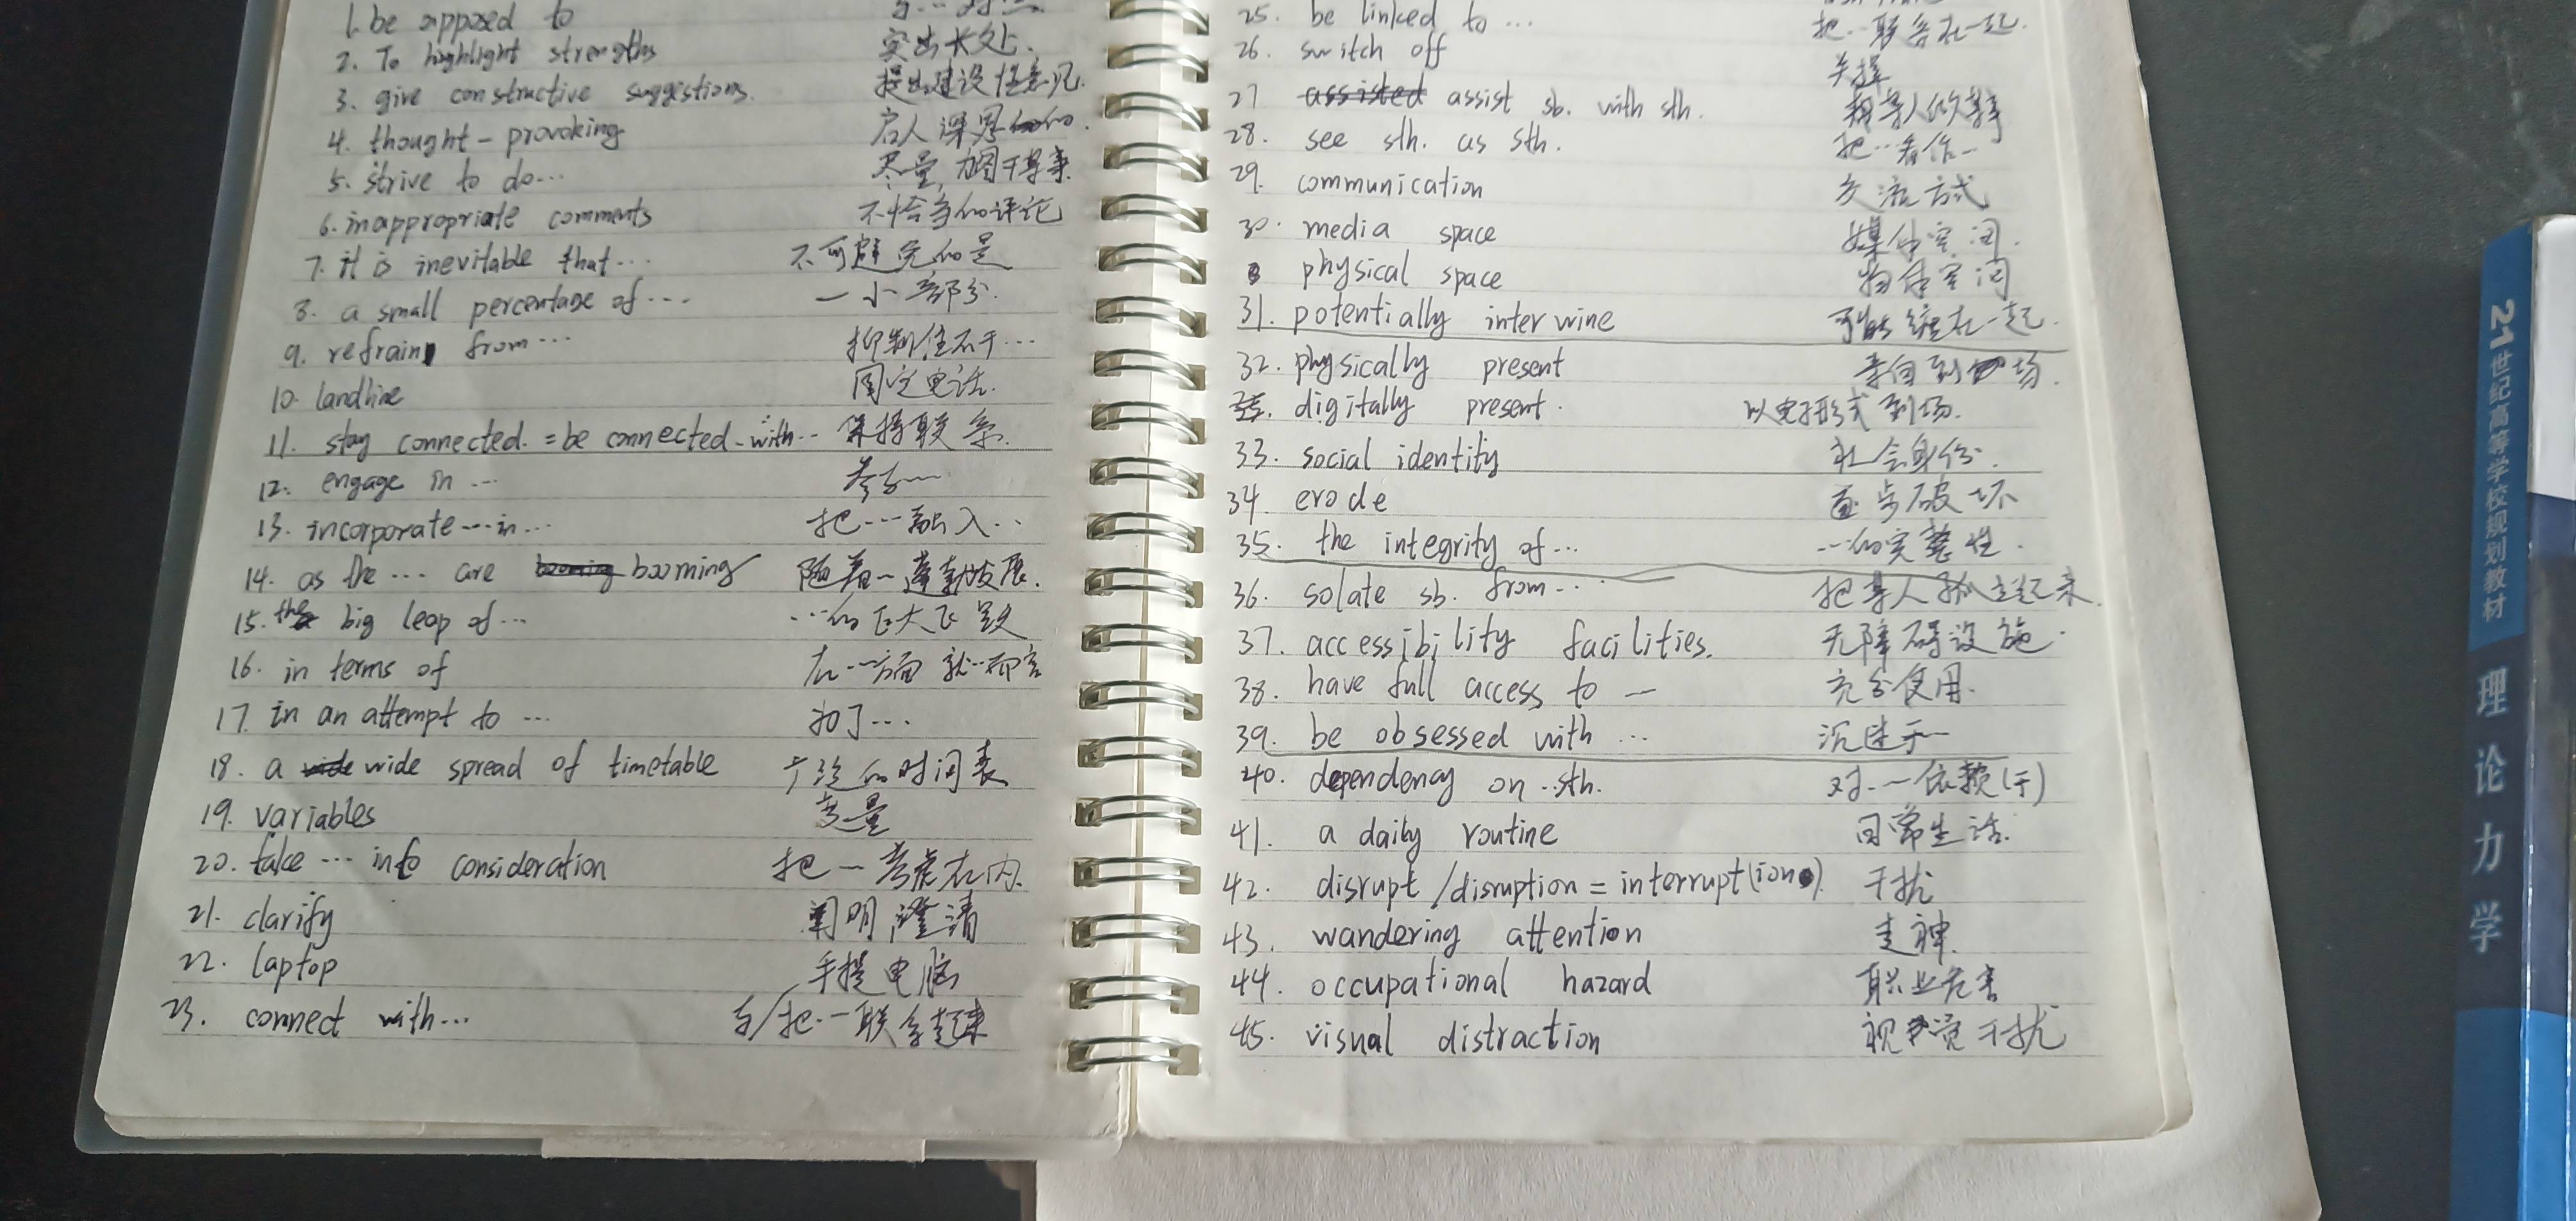 1. be apposed to
2. To highlight strengths 突出长处.
3. give constructive suggestions. 提出建设性意见.
4. thought-provoking 启人深思的.
5. strive to do... 尽量, 力图干某事.
6. inappropriate comments 不恰当的评论
7. it is inevitable that... 不可避免的是
8. a small percentage of... 一小部分.
9. refrain from... 抑制住不干...
10. landline 固定电话.
11. stay connected. = be connected with... 保持联系.
12. engage in ... 参与...
13. incorporate...in... 把...融入...
14. as the ... are booming 随着...蓬勃发展.
15. the big leap of... ...的巨大飞跃
16. in terms of 在...方面 就...而言
17. in an attempt to ... 为了...
18. a wide spread of timetable 广泛的时间表
19. variables 变量
20. take ... into consideration 把...考虑在内.
21. clarify 阐明 澄清
22. laptop 手提电脑
23. connect with... 与/把...联系起来
25. be linked to ... 把...联系在一起.
26. switch off 关掉
27 assist sb. with sth. 帮某人做某事
28. see sth. as sth. 把...看作...
29. communication 交流方式
30. media space 媒介空间.
physical space 物体空间
31. potentially interwine 可能缠在一起.
32. physically present 亲自到场.
digitally present. 以电子形式到场.
33. social identity 社会身份.
34. erode 逐步破坏
35. the integrity of... ...的完整性.
36. solate sb. from... 把某人孤立起来.
37. accessibility facilities. 无障碍设施.
38. have full access to — 充分使用.
39. be obsessed with ... 沉迷于...
40. dependency on sth. 对...依赖(于)
41. a daily routine 日常生活.
42. disrupt/disruption = interrupt(ion). 干扰
43. wandering attention 走神.
44. occupational hazard 职业危害
45. visual distraction 视觉干扰
21世纪高等学校规划教材
理论力学